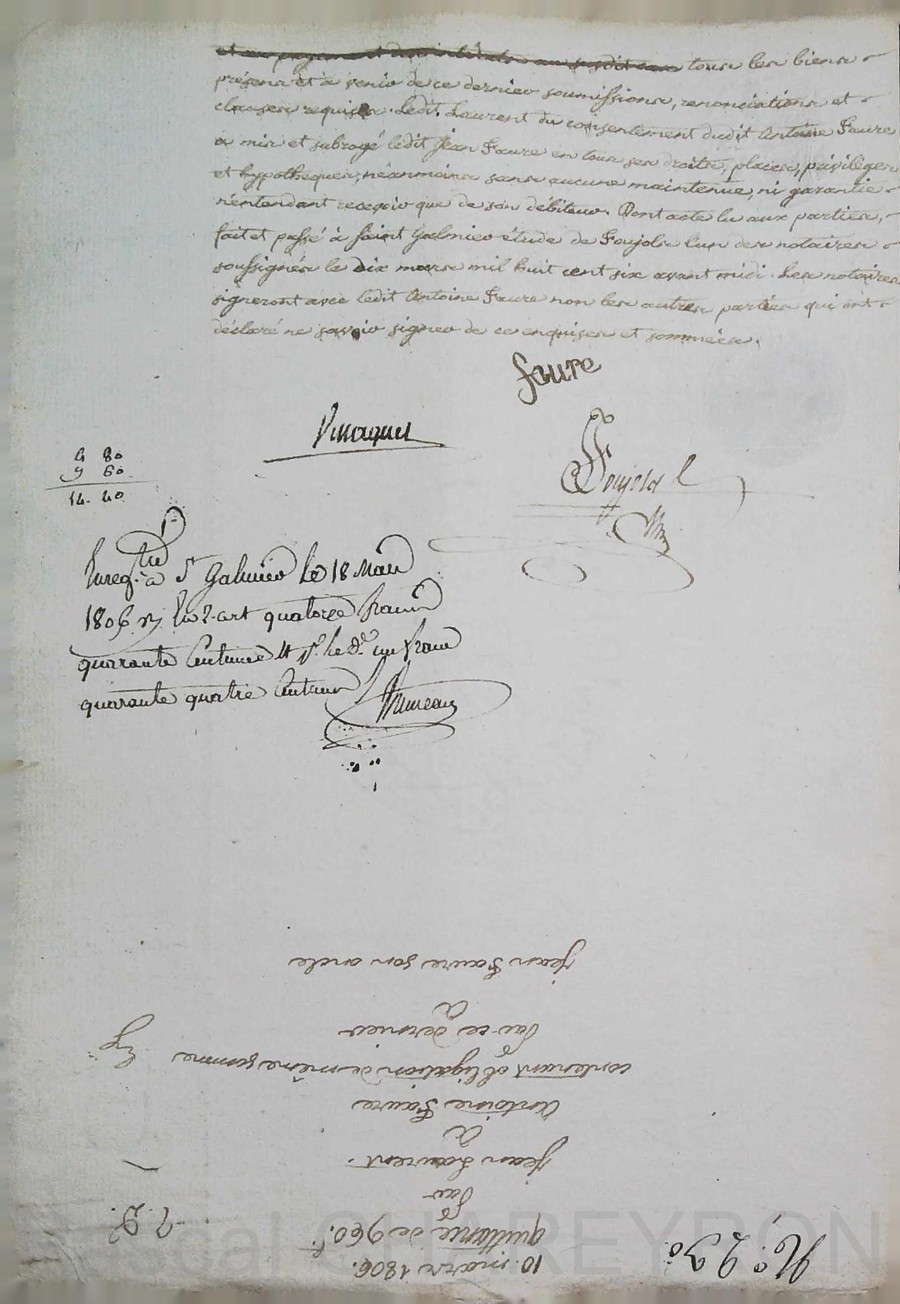 et au payement tous les biens
présens et à venir de ce dernier soumissions, renonciations et
clauses requises. Ledit Laurent du consentement dudit Antoine Faure
a mis et subrogé ledit Jean Faure en tous ses droits, places, privilèges
et hypothèques, néanmoins sans aucune maintenue, ni garantie
n'entendant recevoir que de son débiteur. Dont acte lu aux parties,
fait et passé à Saint Galmier étude de Foujols l'un des notaires
soussignés le dix mars mil huit cent six avant midi. Les notaires
signeront avec ledit Antoine Faure non les autres parties qui ont
déclaré ne savoir signer de ce enquises et sommées.
faure
Foujols
4 80
9 60
14. 40
Enreg.tré à St Galmier le 18 Mars
1806 quatorze francs
quarante Centimes un franc
quarante quatre Centimes
N.o 230.
10. mars 1806.
quittance de 960f.
Par
Jean Laurent.
à
Antoine Faure
contenant obligation de même somme
Par ce dernier
à
Jean Faure son oncle
Pascal CHAREYRON